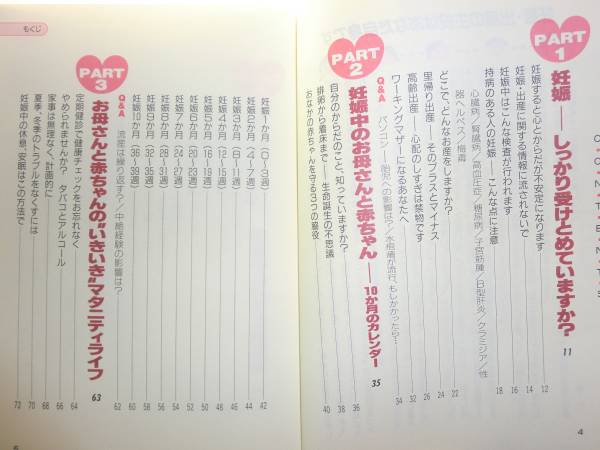 CONTENTS
PART 1
妊娠――しっかり受けとめていますか？ 11
妊娠すると心とからだが不安定になります 12
妊娠・出産に関する情報に流されないで 14
妊娠中はこんな検査が行われます 16
持病のある人の妊娠――こんな点に注意 18
心臓病／腎臓病／高血圧症／糖尿病／子宮筋腫／B型肝炎／クラミジア／性
器ヘルペス／梅毒
どこで、どんなお産をしますか？ 22
里帰り出産――そのプラスとマイナス 24
高齢出産――心配のしすぎは禁物です 26
ワーキングマザーになるあなたへ 32
Q&A
パソコン――胎児への影響は？／水疱瘡が流行、もしかかったら… 34
PART 2
妊娠中のお母さんと赤ちゃん――10か月のカレンダー 35
自分のからだのこと、知っていますか？ 36
排卵から着床まで――生命誕生の不思議 38
おなかの赤ちゃんを守る3つの器役 40
4
もくじ
妊娠1か月（0〜3週） 42
妊娠2か月（4〜7週） 44
妊娠3か月（8〜11週） 46
妊娠4か月（12〜15週） 48
妊娠5か月（16〜19週） 50
妊娠6か月（20〜23週） 52
妊娠7か月（24〜27週） 54
妊娠8か月（28〜31週） 56
妊娠9か月（32〜35週） 58
妊娠10か月（36〜39週） 60
Q&A
流産は繰り返す？／中絶経験の影響は？ 62
PART 3
お母さんと赤ちゃんの"いきいき"マタニティライフ 63
定期健診で健康チェックをお忘れなく 64
やめられませんか？ タバコとアルコール 66
家事は無理なく、計画的に 68
夏季、冬季のトラブルをなくすには 70
妊娠中の休息、安眠はこの方法で 72